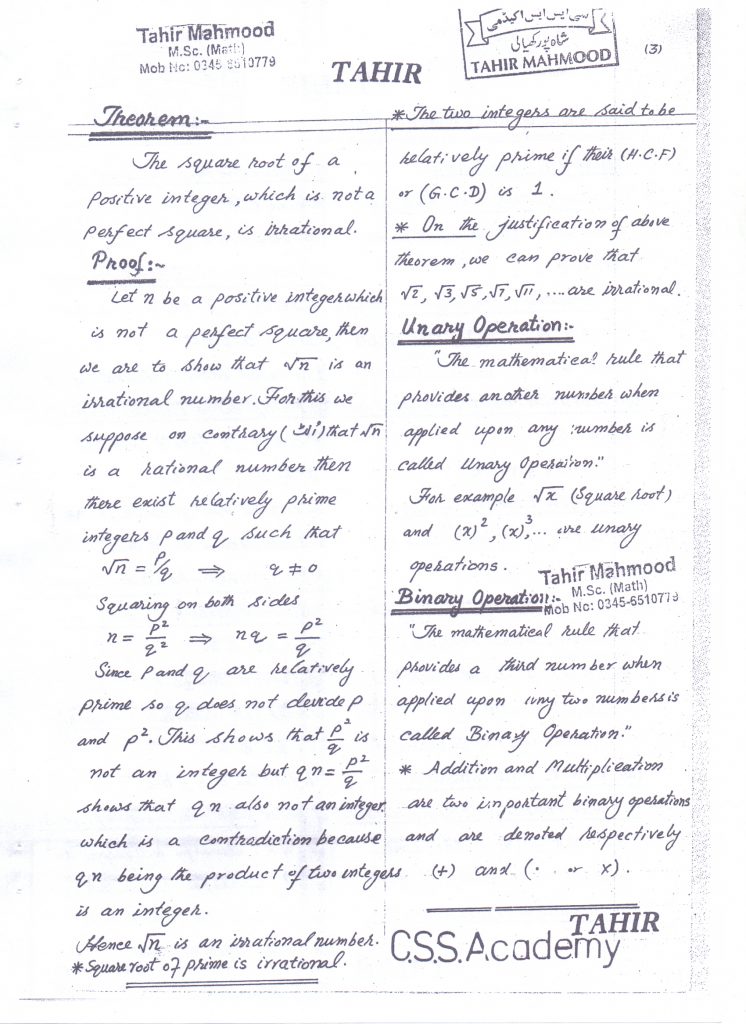 Tahir Mahmood
M.Sc. (Math)
Mob No: 0345-6510779
TAHIR
سی ایس ایس اکیڈمی
شاہ پور کھیالی
TAHIR MAHMOOD
(3)
Theorem:-
The square root of a
positive integer, which is not a
perfect square, is irrational.
Proof:~
Let n be a positive integer which
is not a perfect square, then
we are to show that √n is an
irrational number. For this we
suppose on contrary ( ) that √n
is a rational number then
there exist relatively prime
integers p and q such that
√n = p/q ⇒ q ≠ 0
Squaring on both sides
n = p²/q² ⇒ nq = p²/q
Since p and q are relatively
prime so q does not devide p
and p². This shows that p²/q is
not an integer but qn = p²/q
shows that qn also not an integer
which is a contradiction because
qn being the product of two integers
is an integer.
Hence √n is an irrational number.
* Square root of prime is irrational.
* The two integers are said to be
relatively prime if their (H.C.F)
or (G.C.D) is 1.
* On the justification of above
theorem, we can prove that
√2, √3, √5, √7, √11, .... are irrational.
Unary Operation:-
"The mathematical rule that
provides another number when
applied upon any number is
called Unary Operation."
For example √x (Square root)
and (x)², (x)³,... are unary
operations.
Tahir Mahmood
M.Sc. (Math)
Mob No: 0345-6510779
Binary Operation:-
"The mathematical rule that
provides a third number when
applied upon any two numbers is
called Binary Operation."
* Addition and Multiplication
are two important binary operations
and are denoted respectively
(+) and (· or x).
TAHIR
C.S.S.Academy